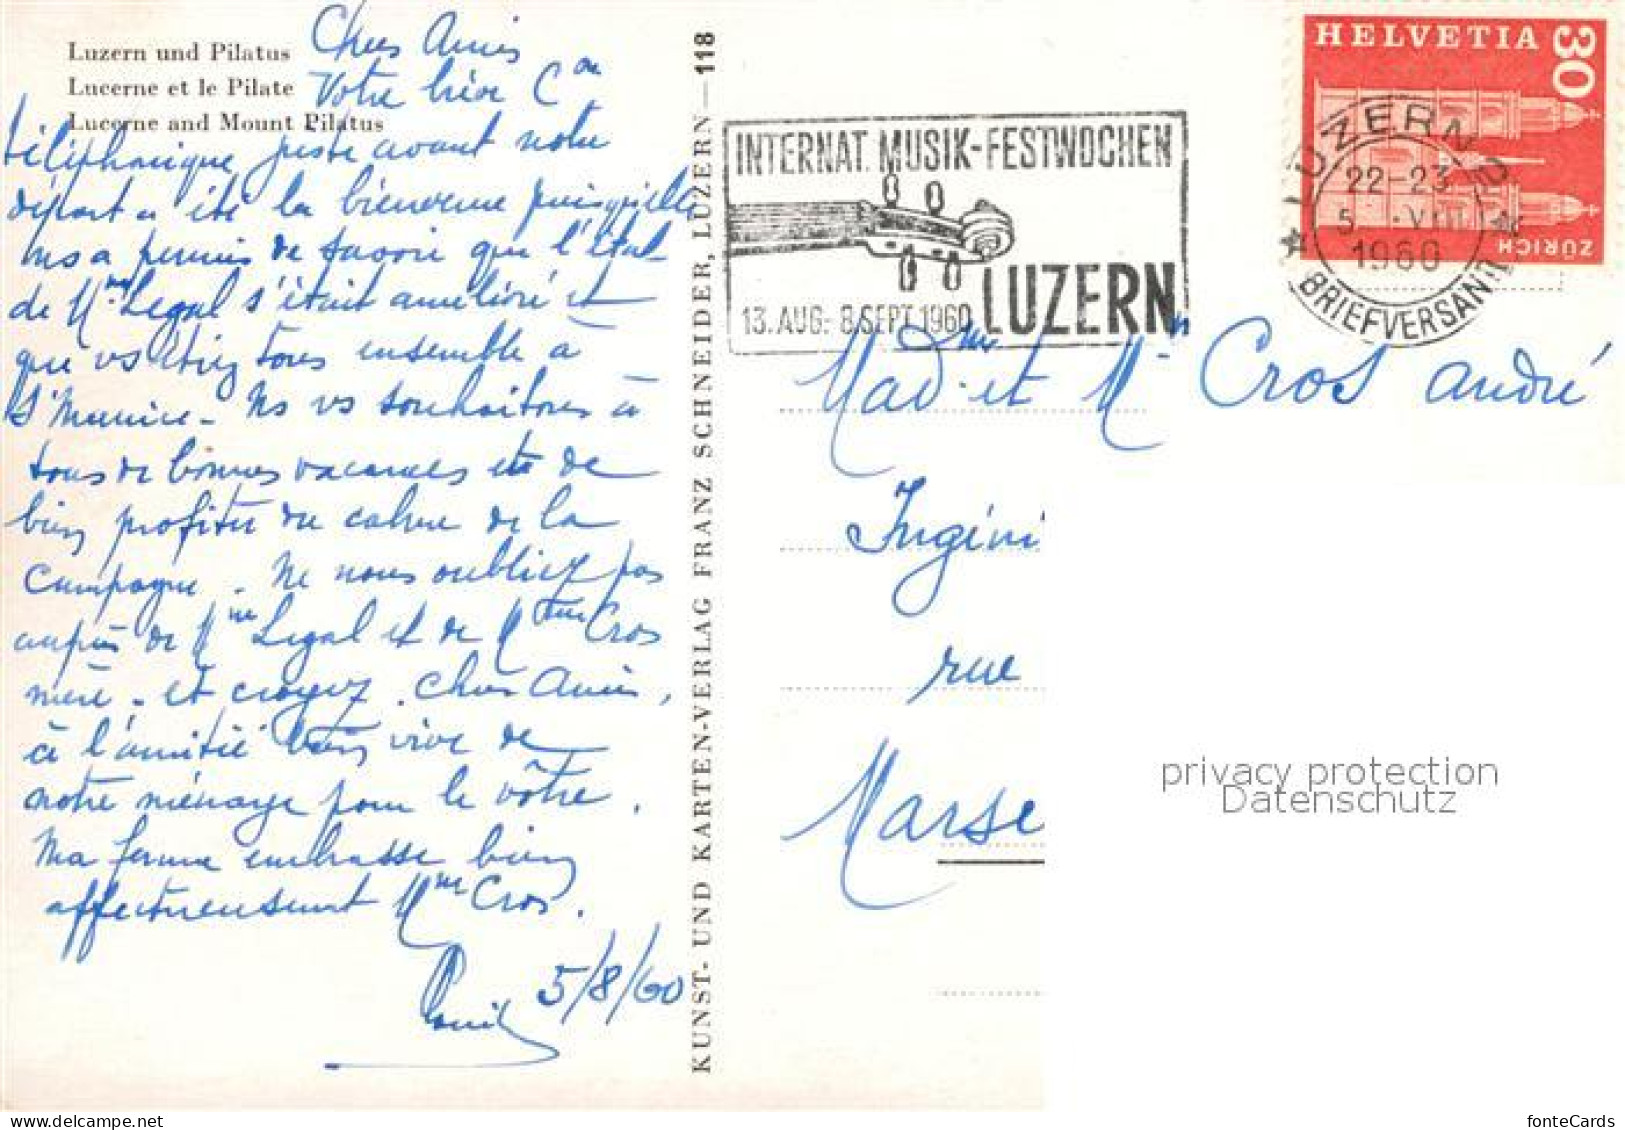 Luzern und Pilatus
Lucerne et le Pilate
Lucerne and Mount Pilatus
Chers Amis
Votre brève Con
téléphonique juste avant notre
départ a été la bienvenue puisqu'elle
ns a permis de savoir que l'état
de Mme Legal s'était amélioré et
que vs étiez tous ensemble à
St Maurice - Ns vs souhaitons à
tous de bonnes vacances et de
bien profiter du calme de la
campagne. Ne nous oubliez pas
auprès de Mme Legal et de Mme Cros
mère - et croyez, chers Amis,
à l'amitié bien vive de
notre ménage pour le vôtre.
Ma femme embrasse bien
affectueusement Mme Cros.
5/8/60
KUNST- UND KARTEN-VERLAG FRANZ SCHNEIDER, LUZERN — 118
INTERNAT. MUSIK-FESTWOCHEN
LUZERN
13. AUG.- 8. SEPT. 1960
HELVETIA
30
ZÜRICH
LUZERN
22-23
5. VIII
1960
BRIEFVERSAND
Madme et Mr Cros André
Ingéni
rue
Marse
privacy protection
Datenschutz
fonteCards